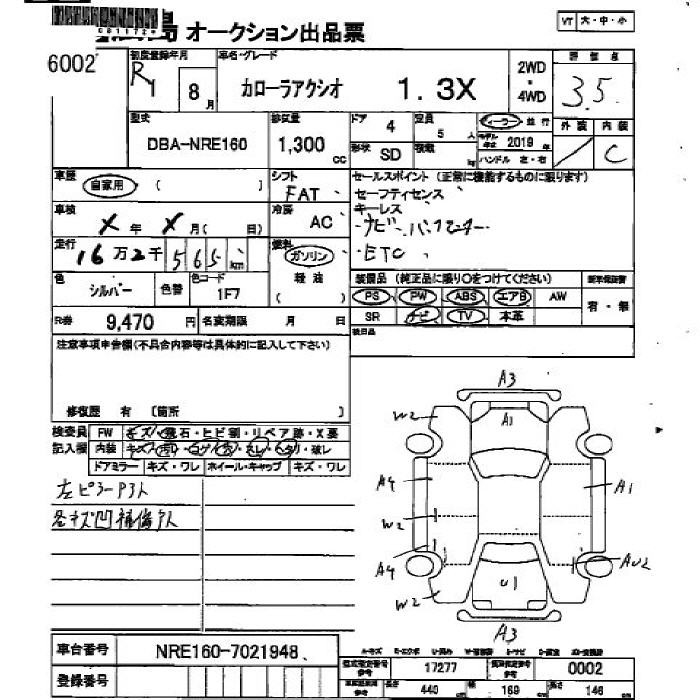 オークション出品票
VT 大・中・小
6002
初度登録年月
R1 8月
車名・グレード
カローラアクシオ 1.3X
2WD
・
4WD
評価点
3.5
外装 内装
C
型式
DBA-NRE160
排気量
1,300 cc
ドア 4
定員 5 人
形状 SD
積載 kg
ディーラー・並行
モデル年式 2019 年
ハンドル 左・右
車歴
自家用 ( )
シフト
FAT
冷房
AC
セールスポイント (正常に機能するものに限ります)
セーフティセンス
キーレス
・ナビ
・ETC
車検
X 年 X 月( 日)
走行
16万2千565 km
燃料
ガソリン
( 軽油 )
色
シルバー
色替
色コード
1F7
装備品 (純正品に限り〇をつけてください)
PS PW ABS エアB AW
SR ナビ TV 本革
新車保証書
有・無
R券 9,470 円 名変期限 月 日
後日品
注意事項申告欄(不具合内容等は具体的に記入して下さい)
修復歴 有 [箇所 ]
検査員 FW キズ・飛石・ヒビ割・リペア跡・X要
記入欄 内装
ドアミラー キズ・ワレ ホイール・キャップ キズ・ワレ
左ピラーP3人
A3
W2
A1
A4
A1
W2
A4
AU2
W2
U1
A3
車台番号 NRE160-7021948
登録番号
型式指定番号 参考 17277
類別指定番号 参考 0002
長さ 440
幅 169
高さ 146